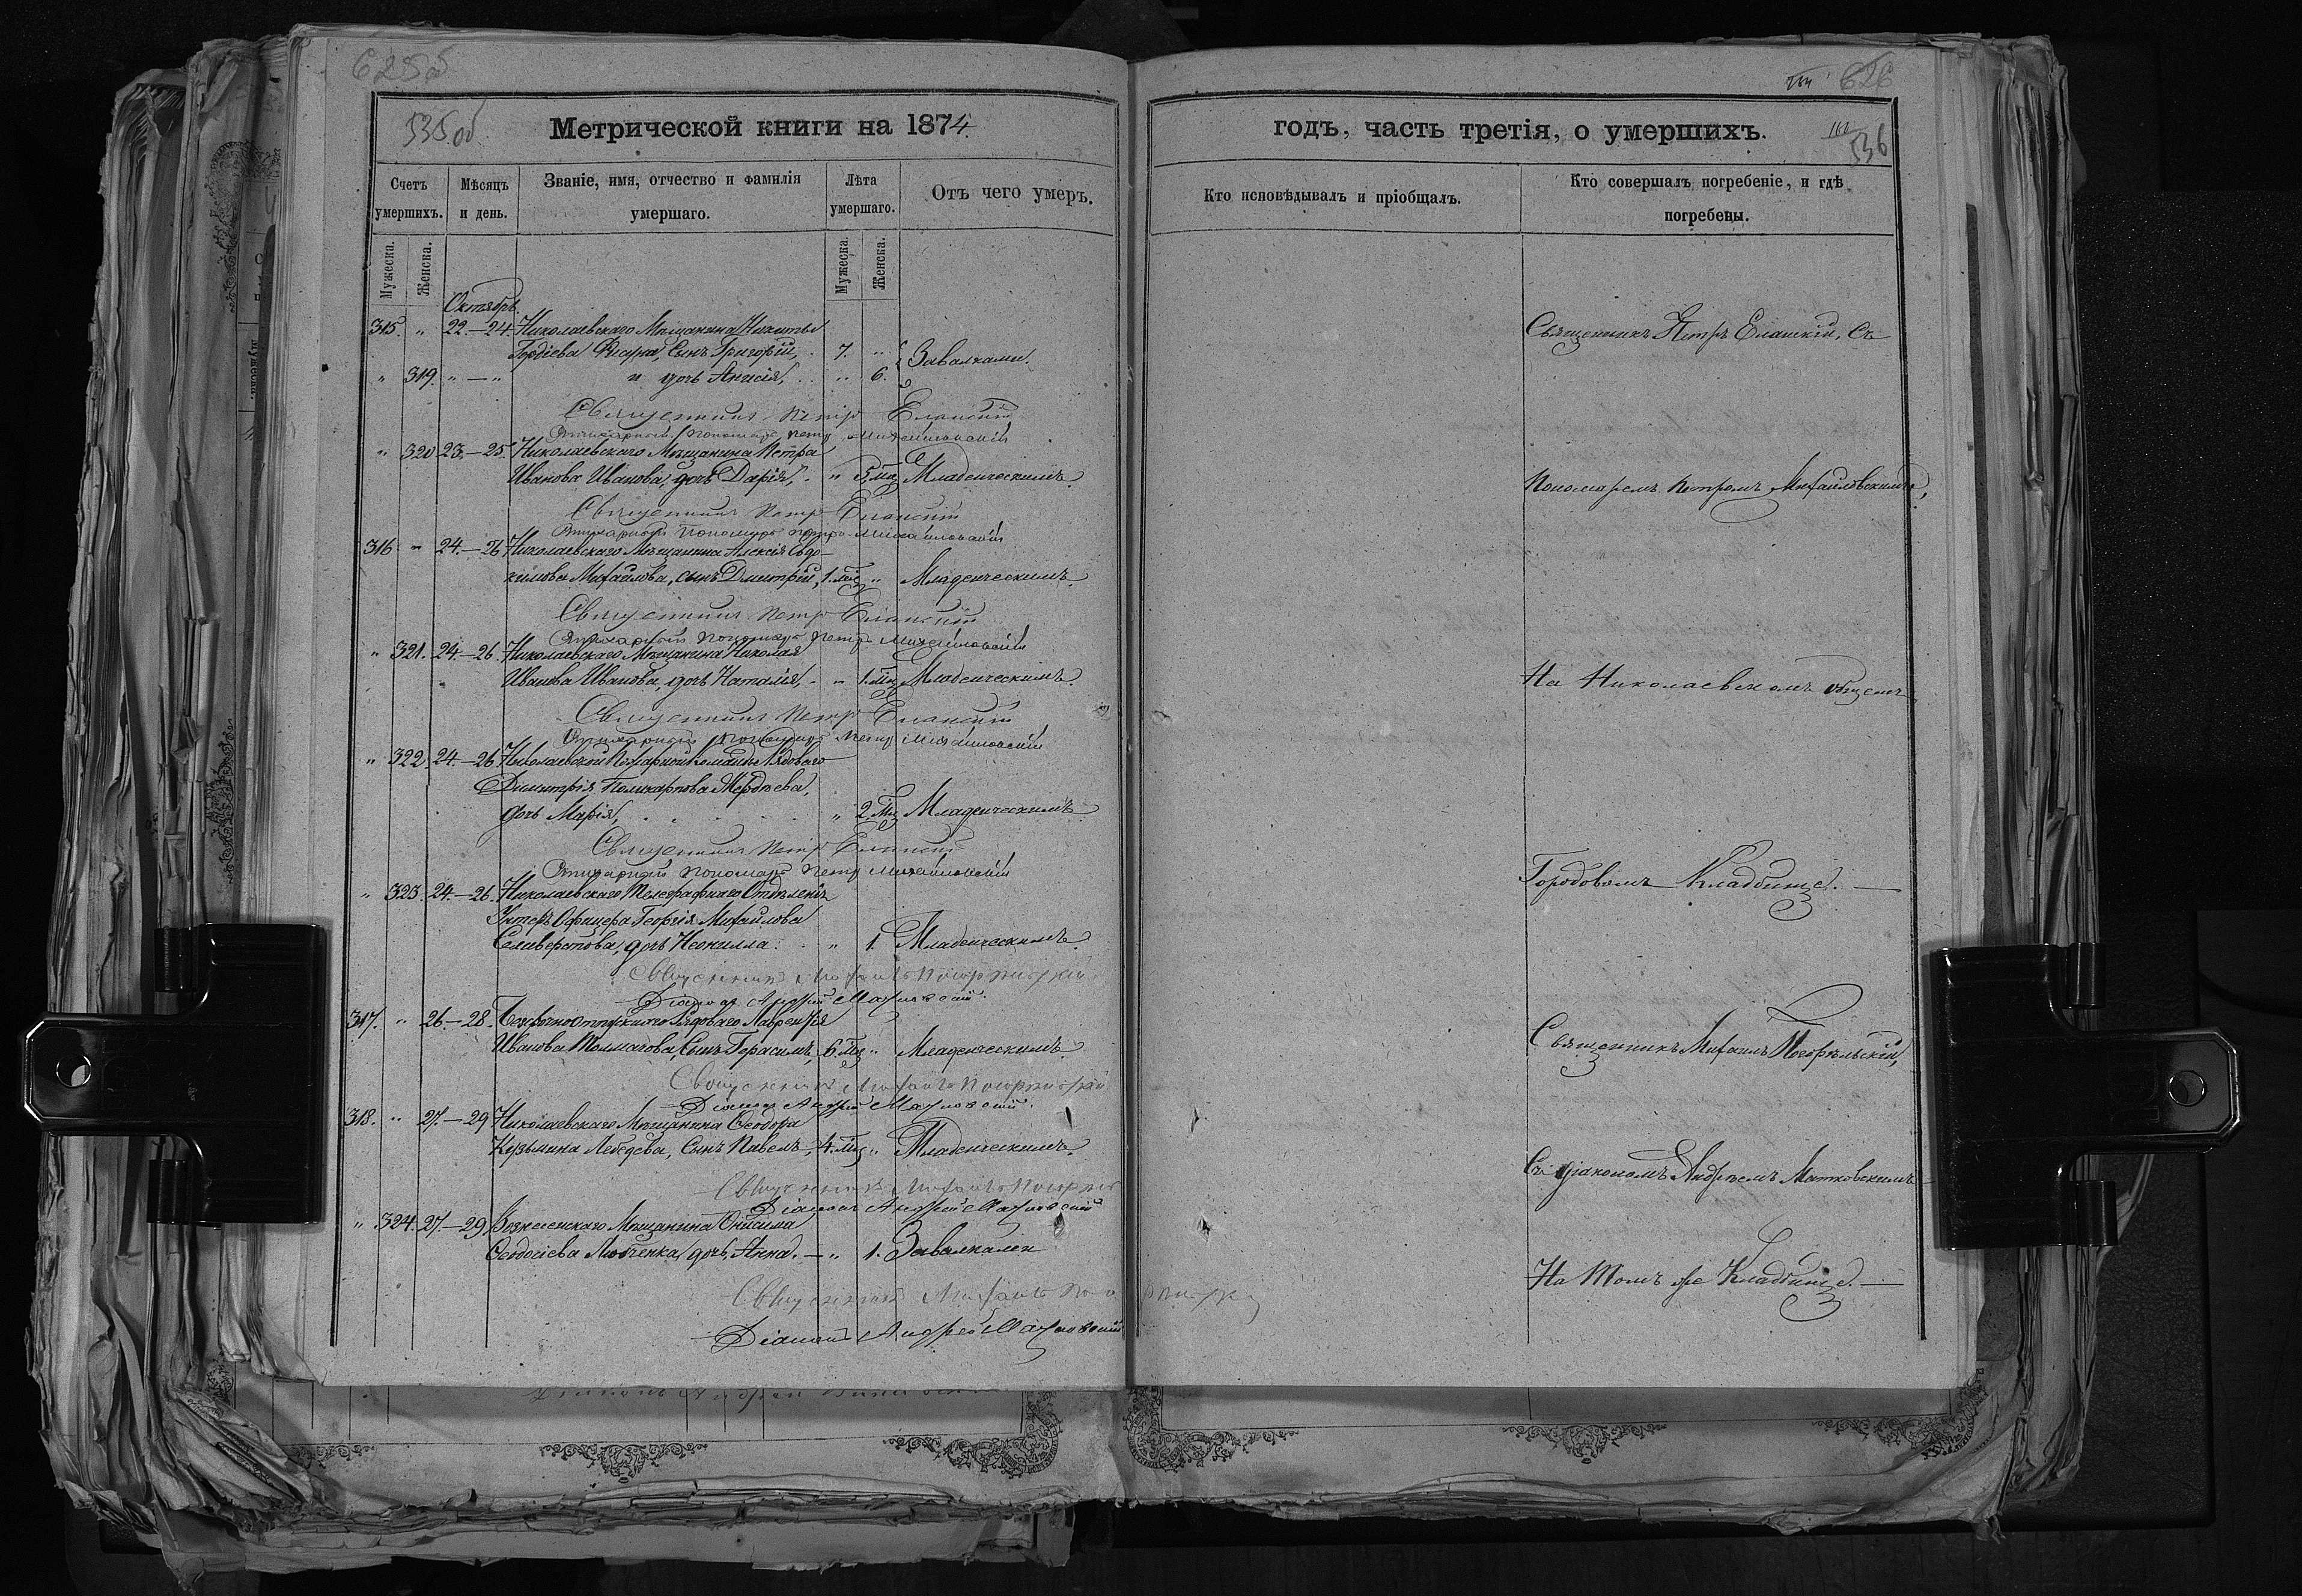 625 об
626
535 об.
536
Метрической книги на 1874
годъ, часть третія, о умершихъ.
Счетъ умершихъ.
Мѣсяцъ и день.
Званіе, имя, отчество и фамилія умершаго.
Лѣта умершаго.
Отъ чего умеръ.
Кто исповѣдывалъ и пріобщалъ.
Кто совершалъ погребеніе, и гдѣ погребены.
Мужеска.
Женска.
Мужеска.
Женска.
Октябрь
315. " 22.—24. Николаевскаго Мѣщанина Никиты
Гордіева сынъ Григорій, 7. "
Завалками.
" 319. " — " и дочь Анисія, " 6.
Священникъ Петръ Еланскій
Пономарь Петръ Михайловскій
" 320 23.—25. Николаевскаго Мѣщанина Петра
Иванова Иванова, дочь Дарія, " 5 мѣс Младенческимъ.
Священникъ Петръ Еланскій
Пономарь Петръ Михайловскій
316 " 24.—26 Николаевскаго Мѣщанина Алексія Евдо-
кимова Михайлова, сынъ Димитрій, 1. мѣс " Младенческимъ.
Священникъ Петръ Еланскій
Пономарь Петръ Михайловскій
" 321. 24.—26 Николаевскаго Мѣщанина Николая
Иванова Иванова, дочь Наталія, " 1. мѣс Младенческимъ.
Священникъ Петръ Еланскій
Пономарь Петръ Михайловскій
" 322. 24.—26 Николаевской Пожарной Команды Рядоваго
Димитрія Поликарпова дочь Марія, " 2. мѣс Младенческимъ
Священникъ Петръ Еланскій
Пономарь Петръ Михайловскій
" 323. 24.—26. Николаевскаго Телеграфнаго Отдѣленія
Унтеръ Офицера Георгія Михайлова
Селиверстова, дочь Неонилла. " 1. Младенческимъ.
Священникъ Михаилъ Погорѣльскій
Діаконъ Андрей Матковскій
317. " 26.—28. Безсрочноотпускнаго Рядоваго Лаврентія
Иванова Толмачова, сынъ Герасимъ, 6. мѣс " Младенческимъ
Священникъ Михаилъ Погорѣльскій
Діаконъ Андрей Матковскій
318. " 27.—29 Николаевскаго Мѣщанина Ѳеодора
Кузьмина Лебедева, сынъ Павелъ, 4. мѣс " Младенческимъ.
Священникъ Михаилъ
Діаконъ Андрей Матковскій
" 324. 27.—29. Вознесенскаго Мѣщанина Онисима
Ѳеодосіева дочь Анна. — " 1. Завалками
Священникъ Михаилъ
Діаконъ Андрей Матковскій
Священникъ Петръ Еланскій, съ
Пономаремъ Петромъ Михайловскимъ,
На Николаевскомъ общемъ
Городовомъ Кладбище. —
Священникъ Михаилъ Погорѣльскій,
Съ діакономъ Андреемъ Матковскимъ
На томъ же Кладбище. —